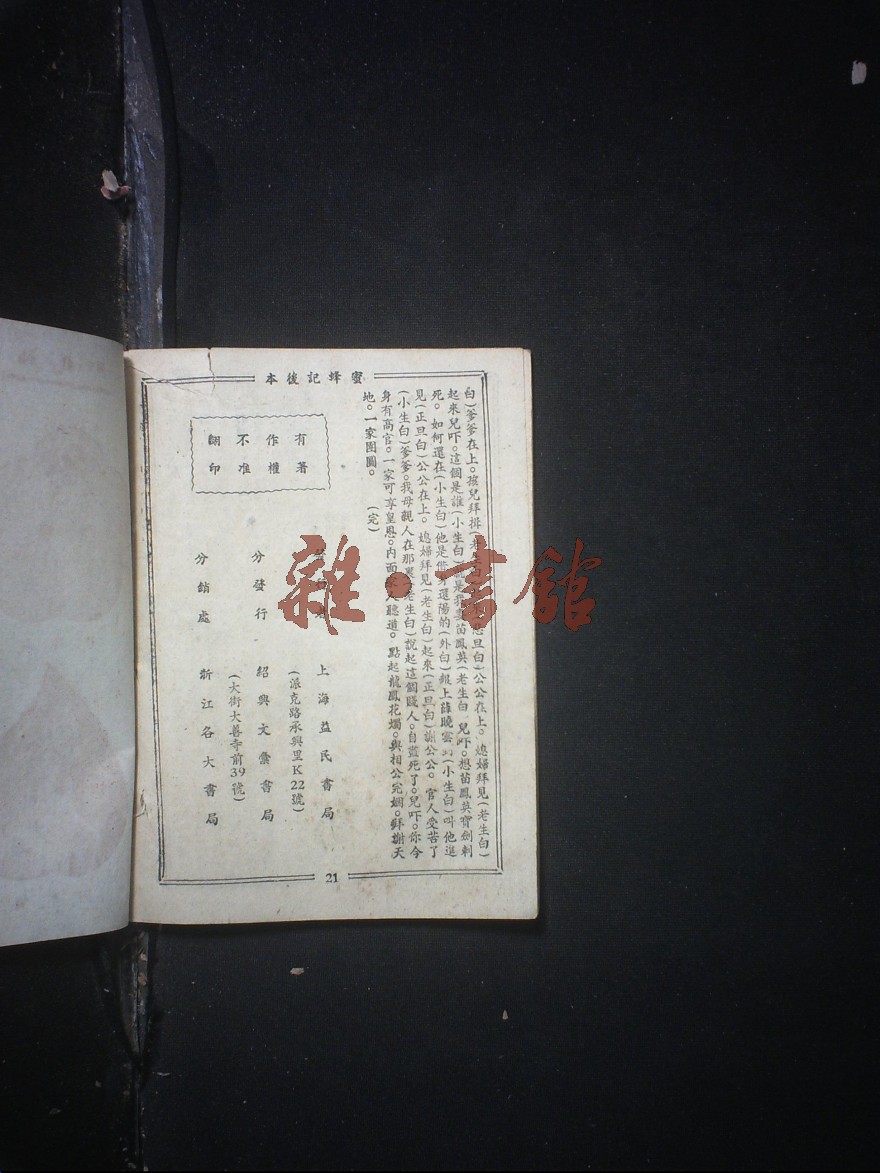 蜜蜂記後本
白)爹爹在上。孩兒拜揖(老生 悲旦白)公公在上。媳婦拜見(老生白)
起來兒吓。這個是誰(小生白 是我妻苗鳳英(老生白 兒吓。想苗鳳英寶劍刺
死。如何還在(小生白)他是借身還陽的(外白)報上薛曉雲到(小生白)叫他進
見(正旦白)公公在上。媳婦拜見(老生白)起來(正旦白)謝公公。官人受苦了
(小生白)爹爹。我母親人在那裏(老生白)說起這個賤人。自盡死了。兒吓。你今
身有高官。一家可享皇恩。内面 聽道。點起龍鳳花燭。與相公完姻。拜謝天
地。一家團圓。 (完)
有著
作權
不准
翻印
上海益民書局
(派克路承興里K22號)
分發行 紹興文彙書局
(大街大善寺前39號)
分銷處 浙江各大書局
21
雜·書館